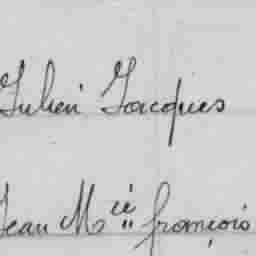 Julien Jacques
Jean Mie françois